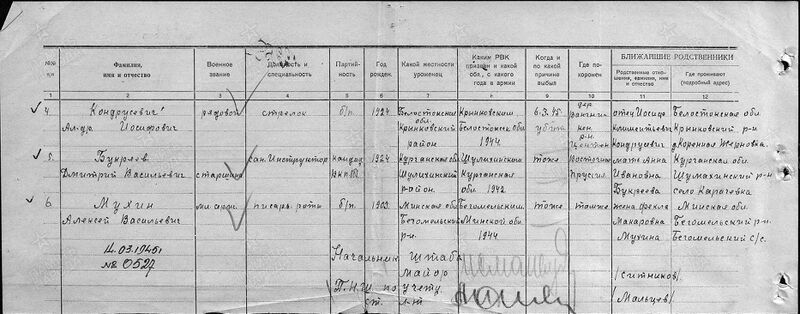 №№ п/п | Фамилия, имя и отчество | Военное звание | Должность и специальность | Партийность | Год рожден. | Какой местности уроженец | Каким РВК призван и какой обл., с какого года в армии | Когда и по какой причине выбыл | Где похоронен | БЛИЖАЙШИЕ РОДСТВЕННИКИ
Родственные отношения, фамилия, имя и отчество | Где проживают (подробный адрес)
1 2 3 4 5 6 7 8 9 10 11 12
4 Кондрусевич рядовой стрелок б/п. 1924 Белостокская обл. Кринковским 6.3.45 дер. отец Иосиф Белостокская обл.
Ал-др. Иосифович Кринковский Белостокск. обл убит Кринковский р-н
район 1944 р-н. Кондрусевич
5 Букреев сан. Инструктор кандид. 1924 Курганская обл. Шумихинским тоже Восточная мать Анна Курганская обл.
Дмитрий Васильевич старшина ВКП/б/ Курганской Пруссия Ивановна Шумихинский р-н
район. обл. 1942 Букреева село Карачевка
6 Мухин мл. сард. писарь роты б/п. 1903. Минская обл. Бегомльским тоже тамже жена Фекла Минская обл.
Алексей Васильевич Бегомельский Минской обл. Макаровна Бегомельский р-н.
р-н. 1944 Мухина Бегомельский с/с.
14.03.1945г
№ 0527
Начальник Штаба
майор /Ситников/
П.Н.Ш. по учету
ст. л-т /Мальцев/